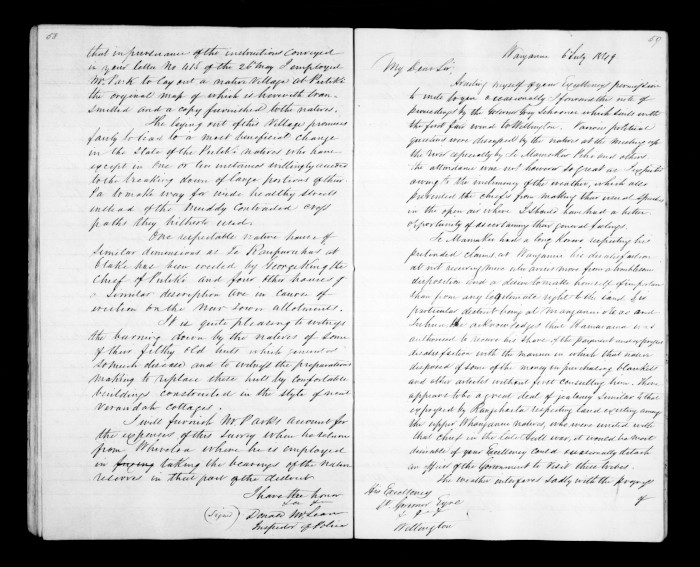 58
that in pursuance of the instructions conveyed
in your letter No 415 of the 26 May I employed
Mr Park to lay out a native Village at Putiki
the original map of which is herewith tran-
smitted and a copy furnished to the natives.
The laying out of this Village promises
fairly to lead to a most beneficial change
in the state of the Putiki natives who have
except in one or two instances willingly
to the breaking down of large portions of their
Pa to make way for wide healthy streets
instead of the muddy contracted cross
paths they hitherto used.
One respectable native house of
similar dimensions as Te Rauparahas at
Otaki has been erected by George King the
Chief of Putiki and four other houses of
a similar description are in course of
erection on the new Town allotments.
It is quite pleasing to witness
the burning down by the natives of some
of their filthy old huts which generated
so much disease and to witness the preparations
making to replace these huts by comfortable
buildings constructed in the style of neat
Verandah cottages.
I will furnish Mr Parks account for
the expenses of this survey when he returns
from Wherelon where he is employed
in taking the bearings of the native
reserves in that part of the district
I have the honor
(Signed) Donald McLean
Inspector of Police
59
Wanganui 6 July 1849
My Dear Sir,
Availing myself of your Excellencys permission
to write to you occasionally I forward the note of
proceedings by the Government Schooner which sails with
the first fair wind to Wellington. Various political
were by the natives at the meeting
the most especially by Te Mamaku Pehi and others
the attendance was not however so great as I expected
owing to the inclemency of the weather, which also
prevented the chiefs from making their usual speeches
in the open air where I should have had a better
opportunity of ascertaining their general feelings.
Te Mamaku had a long korero respecting his
pretended claims at Wanganui his dissatisfaction
at not receiving more from a
disposition and a desire to make himself of importance
than from any legitimate right to the land, his
particular district being at and
he acknowledges that was
authorised to receive his share of the payment and expresses
dissatisfaction with the manner in which that native
disposed of some of the money in purchasing blankets
and other articles without first consulting him. There
appears to be a good deal of jealousy similar to that
expressed by Rangihaeata respecting land existing among
the upper Whanganui natives, who were united with
that Chief in the late Hutt war, it would be most
desirable if your Excellency could occasionally detach
an officer of the Government to visit these tribes.
The weather interferes sadly with the progress
of
His Excellency
Lt Governor Eyre
Wellington